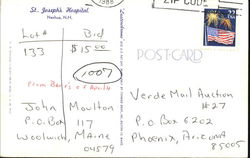 St. Joseph's Hospital
Nashua, N.H.
1988
ZIP CODE
22
USA
Lot# Bid
133 $15.00
1007
POST CARD
From Barr's of April 4
John Moulton
P.O. Box 117
Woolwich, Maine
04579
Verde Mail Auction
#27
P.O. Box 6202
Phoenix, Arizona
85005